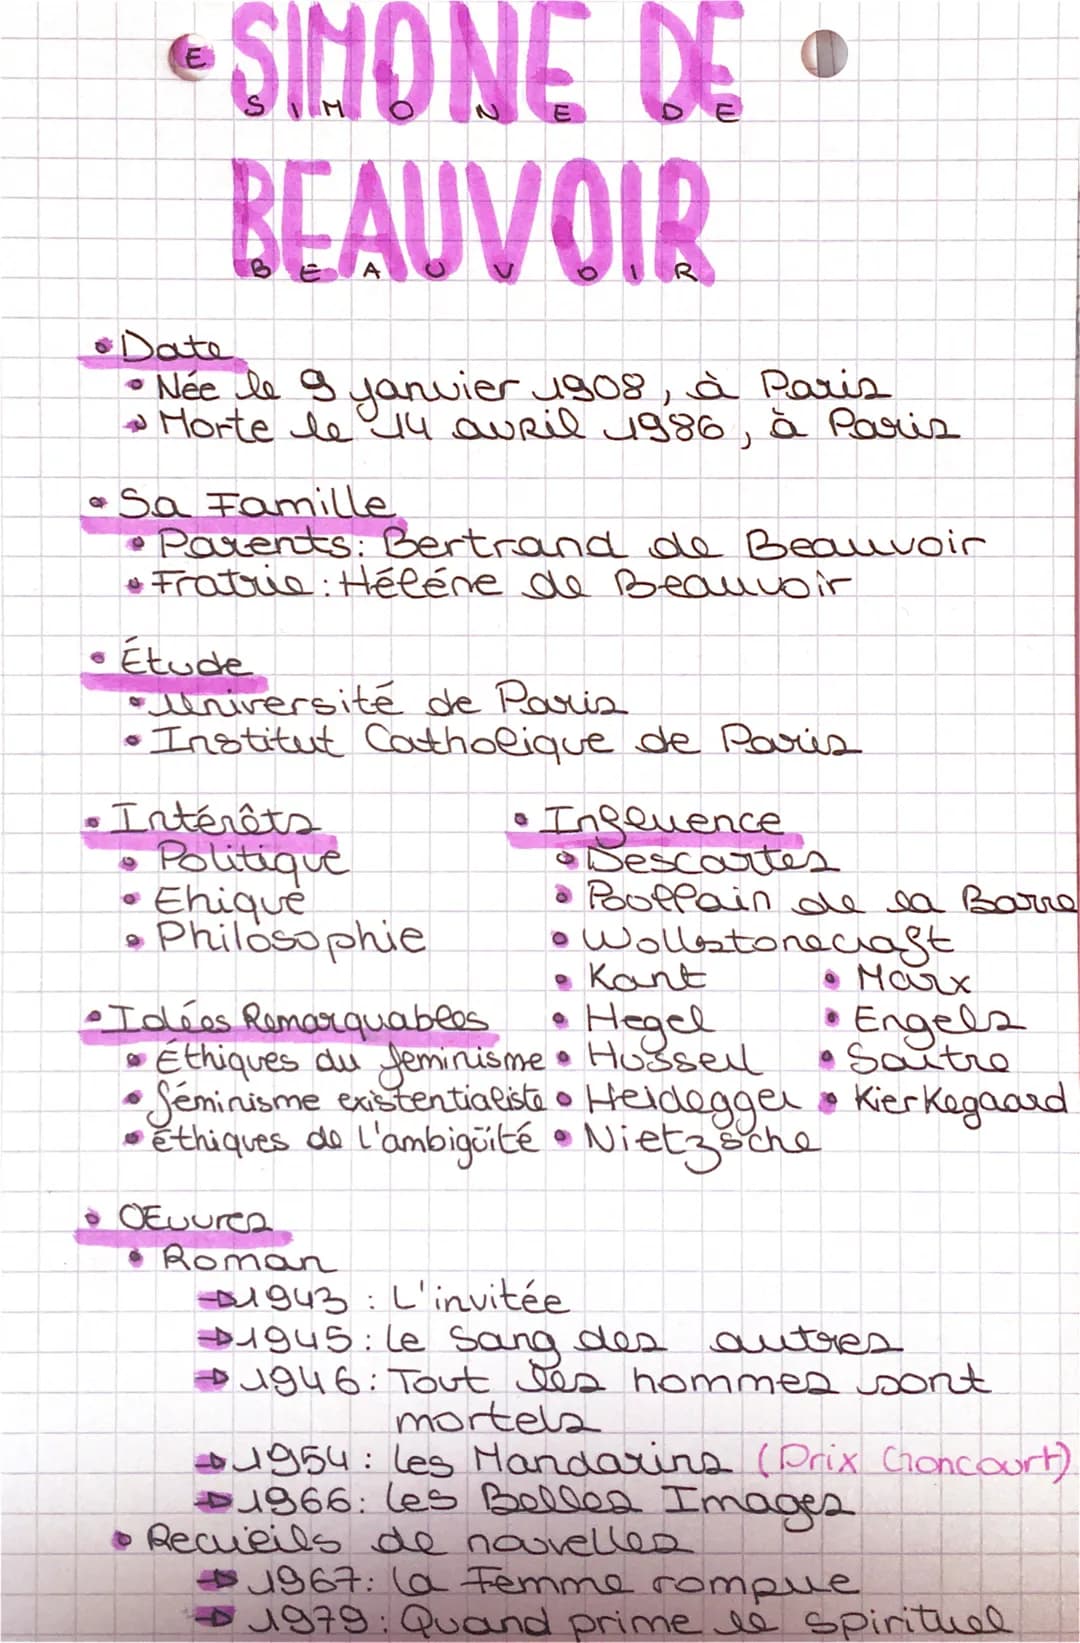 E
SIMONE DE
S I M O N E D E
BEAUVOIR
B E A U V O I R
• Date
• Née le 9 janvier 1908, à Paris
• Morte le 14 avril 1986, à Paris
• Sa Famille
• Parents: Bertrand de Beauvoir
• Fratrie: Héléne de Beauvoir
• Étude
• Université de Paris
• Institut Catholique de Paris
• Intérêts
• Politique
• Ehique
• Philosophie
• Influence
• Descartes
• Poullain de la Barre
• Wollstonecraft
• Kant
• Hegel
• Husserl
• Heidegger
• Nietzsche
• Marx
• Engels
• Sartre
• Kierkegaard
• Idées Remarquables
• Éthiques du feminisme
• féminisme existentialiste
• éthiques de l'ambigüité
• Œuvres
• Roman
→ 1943: L'invitée
→ 1945: Le Sang des autres
→ 1946: Tout les hommes sont
mortels
→ 1954: Les Mandarins (Prix Goncourt)
→ 1966: Les Belles Images
• Recueils de nouvelles
→ 1967: La Femme rompue
→ 1979: Quand prime le spirituel